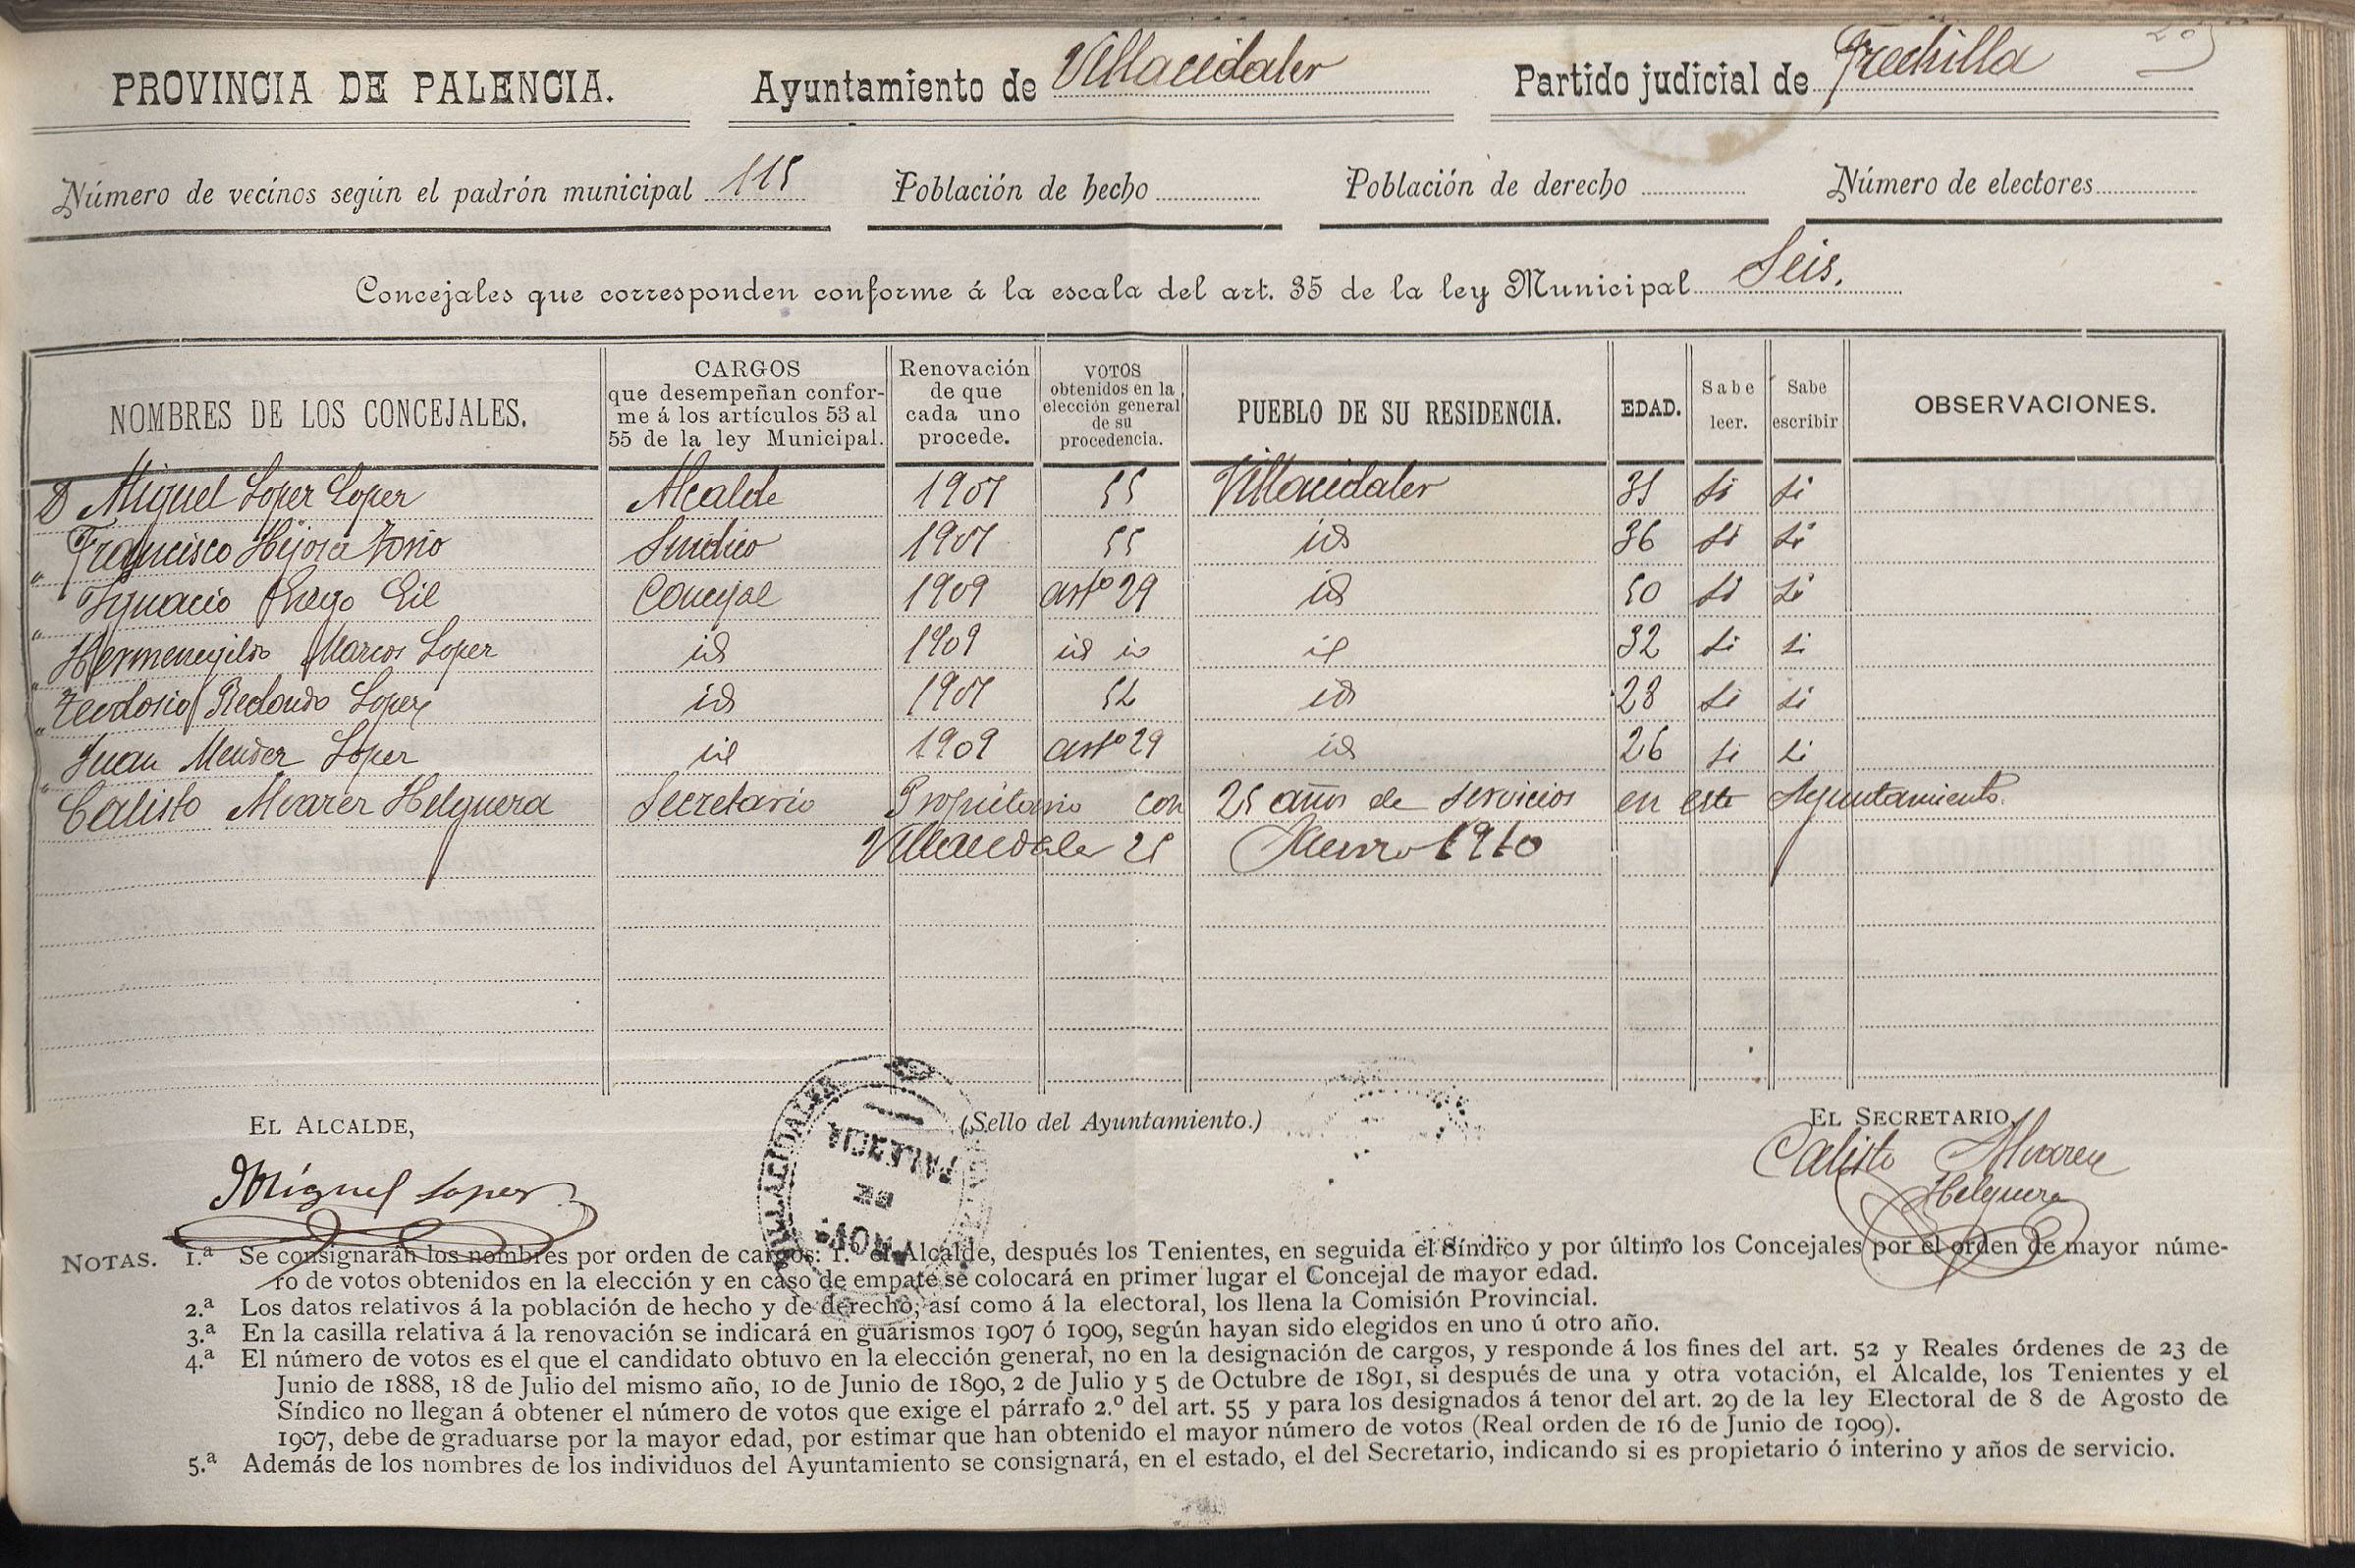 PROVINCIA DE PALENCIA. Ayuntamiento de Villacidaler Partido judicial de Frechilla
Número de vecinos según el padrón municipal 115 Población de hecho Población de derecho Número de electores
Concejales que corresponden conforme á la escala del art. 35 de la ley Municipal Seis.
NOMBRES DE LOS CONCEJALES.
CARGOS
que desempeñan confor-
me á los artículos 53 al
55 de la ley Municipal.
Renovación
de que
cada uno
procede.
VOTOS
obtenidos en la
elección general
de su
procedencia.
PUEBLO DE SU RESIDENCIA.
EDAD.
Sabe
leer.
Sabe
escribir
OBSERVACIONES.
D Miguel Lopez Lopez Alcalde 1907 55 Villacidaler 35 si si
" Francisco Hijosa Sindico 1907 55 id 36 si si
" Ygnacio Gil Concejal 1909 artº 29 id 50 si si
" Hermenegildo Marcos Lopez id 1909 id id id 32 si si
" Teodosio Redondo Lopez id 1907 52 id 28 si si
" Juan Mendez Lopez id 1909 artº 29 id 26 si si
" Calisto Alvarez Helguera Secretario Propietario con 25 años de servicios en este Ayuntamiento.
Villacidaler 25 Enero 1910
EL ALCALDE, (Sello del Ayuntamiento.) EL SECRETARIO,
Miguel Lopez
Calisto Alvarez
Helguera
VILLACIDALER
PALENCIA
DE
PROV.
NOTAS. 1.ª Se consignarán los nombres por orden de cargos: 1.º el Alcalde, después los Tenientes, en seguida el Síndico y por último los Concejales por el orden de mayor núme-
ro de votos obtenidos en la elección y en caso de empate se colocará en primer lugar el Concejal de mayor edad.
2.ª Los datos relativos á la población de hecho y de derecho, así como á la electoral, los llena la Comisión Provincial.
3.ª En la casilla relativa á la renovación se indicará en guarismos 1907 ó 1909, según hayan sido elegidos en uno ú otro año.
4.ª El número de votos es el que el candidato obtuvo en la elección general, no en la designación de cargos, y responde á los fines del art. 52 y Reales órdenes de 23 de
Junio de 1888, 18 de Julio del mismo año, 10 de Junio de 1890, 2 de Julio y 5 de Octubre de 1891, si después de una y otra votación, el Alcalde, los Tenientes y el
Síndico no llegan á obtener el número de votos que exige el párrafo 2.º del art. 55 y para los designados á tenor del art. 29 de la ley Electoral de 8 de Agosto de
1907, debe de graduarse por la mayor edad, por estimar que han obtenido el mayor número de votos (Real orden de 16 de Junio de 1909).
5.ª Además de los nombres de los individuos del Ayuntamiento se consignará, en el estado, el del Secretario, indicando si es propietario ó interino y años de servicio.